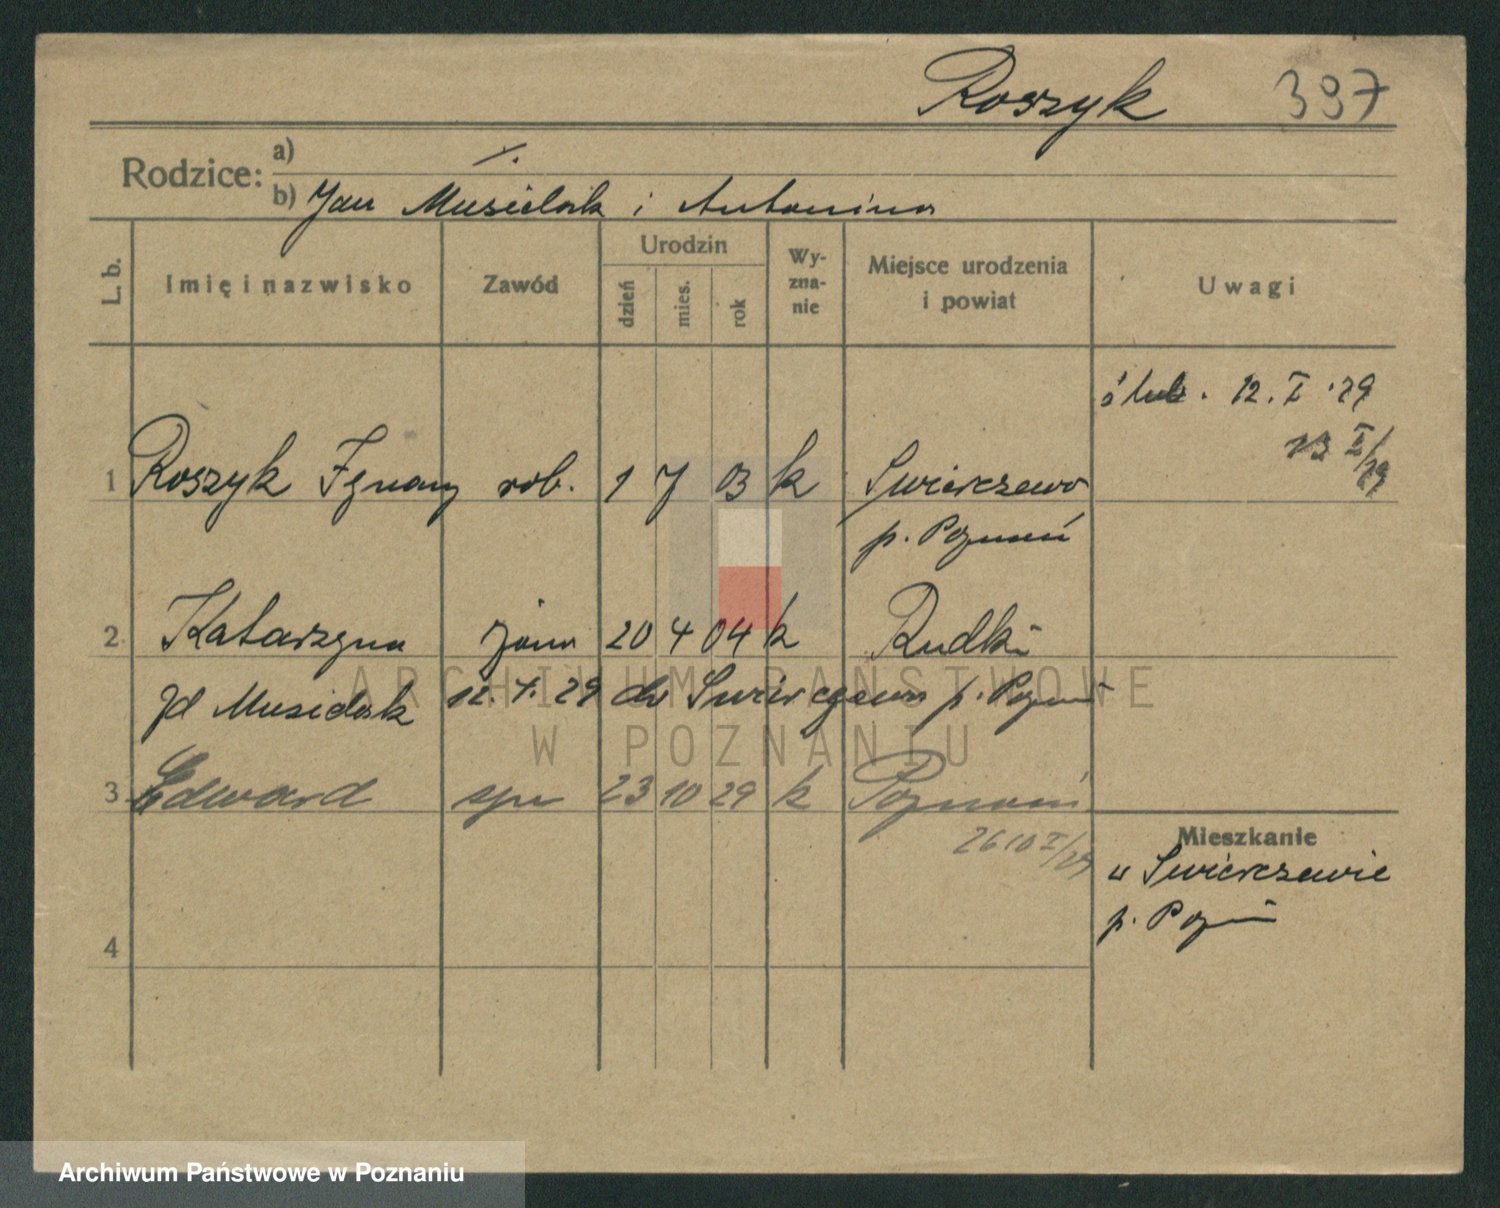 Roszyk 397
Rodzice:
a)
b) Jan Musielak i Antonina
L. b.
Imię i nazwisko
Zawód
Urodzin
dzień
mies.
rok
Wy-
zna-
nie
Miejsce urodzenia
i powiat
Uwagi
ślub. 12. I. 29
1 Roszyk Ignacy rob. 1 7 03 k Swierczewo
p. Poznań
2 Katarzyna żona 20 4 04 k Rudki
Musielak 29 do Swierczewo p. Pozn
3 Edward syn 23 10 29 k Poznań
Mieszkanie
w Swierczewie
p. Pozn
4
ARCHIWUM PAŃSTWOWE
W POZNANIU
Archiwum Państwowe w Poznaniu